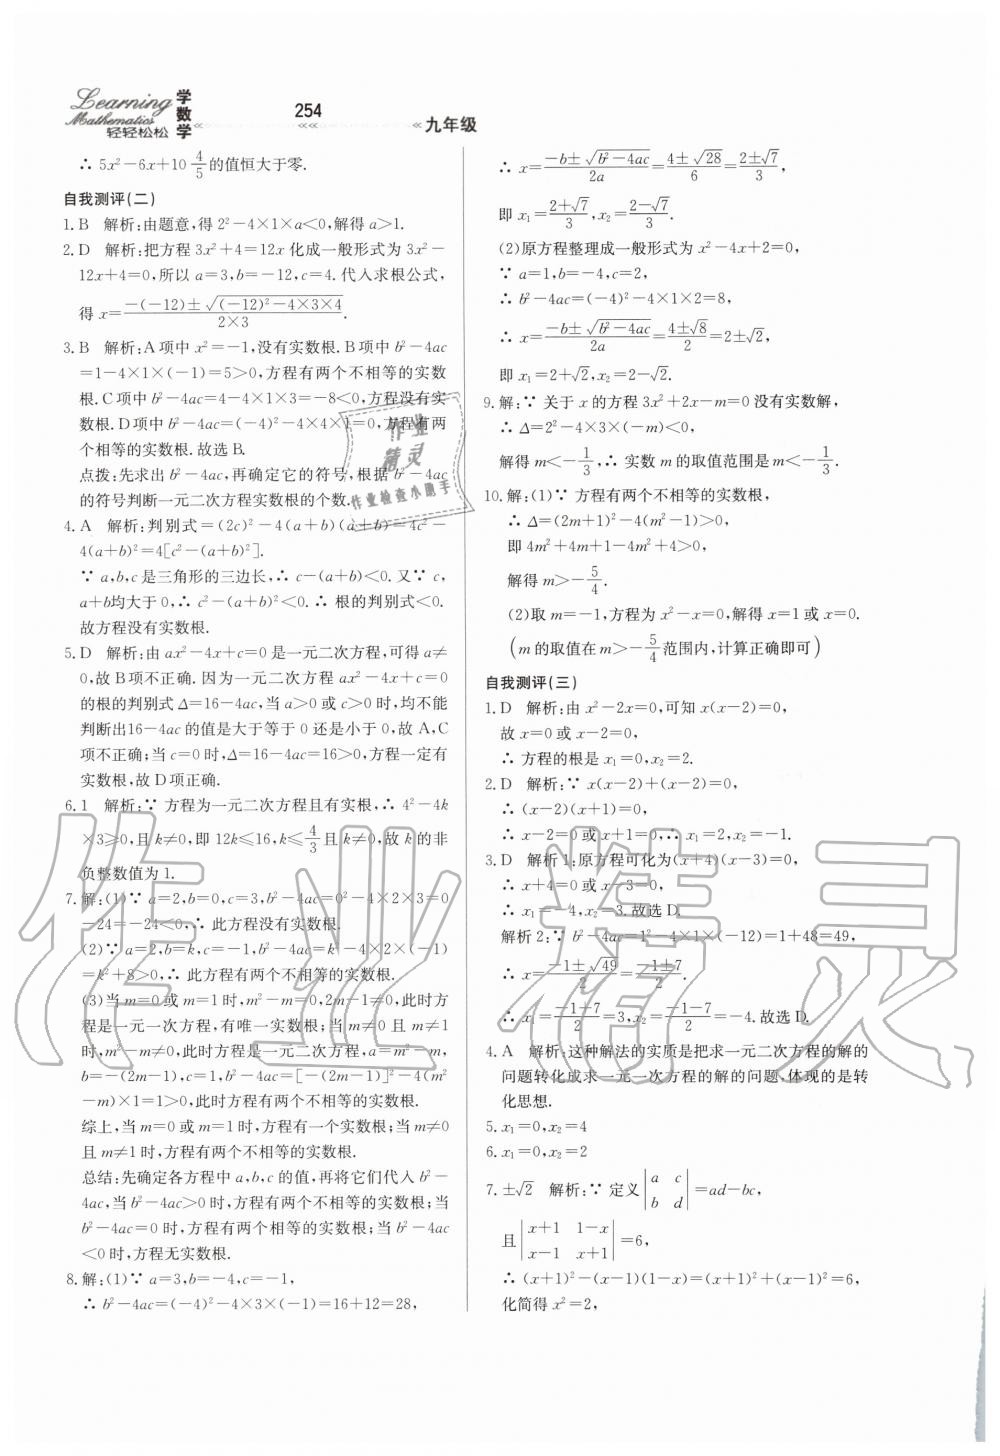 Learning
Mathematics
轻轻松松
学数学
254
九年级
∴ 5x²-6x+10 4/5 的值恒大于零.
自我测评(二)
1. B 解析:由题意,得 2²-4×1×a<0,解得 a>1.
2. D 解析:把方程 3x²+4=12x 化成一般形式为 3x²-
12x+4=0,所以 a=3,b=-12,c=4. 代入求根公式,
得 x=(-(-12)±√((-12)²-4×3×4))/(2×3).
3. B 解析:A 项中 x²=-1,没有实数根. B 项中 b²-4ac
=1-4×1×(-1)=5>0,方程有两个不相等的实数
根. C 项中 b²-4ac=4-4×1×3=-8<0,方程没有实
数根. D 项中 b²-4ac=(-4)²-4×4×1=0,方程有两
个相等的实数根. 故选 B.
点拨:先求出 b²-4ac,再确定它的符号,根据 b²-4ac
的符号判断一元二次方程实数根的个数.
4. A 解析:判别式=(2c)²-4(a+b)(a+b)=4c²-
4(a+b)²=4[c²-(a+b)²].
∵ a,b,c 是三角形的三边长,∴ c-(a+b)<0. 又∵ c,
a+b均大于 0,∴ c²-(a+b)²<0. ∴ 根的判别式<0.
故方程没有实数根.
5. D 解析:由 ax²-4x+c=0 是一元二次方程,可得 a≠
0,故 B 项不正确. 因为一元二次方程 ax²-4x+c=0
的根的判别式 Δ=16-4ac,当 a>0 或 c>0 时,均不能
判断出16-4ac 的值是大于等于 0 还是小于 0,故 A,C
项不正确;当 c=0 时,Δ=16-4ac=16>0,方程一定有
实数根,故 D 项正确.
6. 1 解析:∵ 方程为一元二次方程且有实根,∴ 4²-4k
×3≥0,且 k≠0,即 12k≤16,k≤4/3 且 k≠0,故 k 的非
负整数值为 1.
7. 解:(1)∵ a=2,b=0,c=3,b²-4ac=0²-4×2×3=0
-24=-24<0,∴ 此方程没有实数根.
(2)∵ a=2,b=k,c=-1,b²-4ac=k²-4×2×(-1)
=k²+8>0,∴ 此方程有两个不相等的实数根.
(3)当 m=0 或 m=1 时,m²-m=0,2m-1≠0,此时方
程是一元一次方程,有唯一实数根;当 m≠0 且 m≠1
时,m²-m≠0,此时方程是一元二次方程,a=m²-m,
b=-(2m-1),c=1,b²-4ac=[-(2m-1)]²-4(m²
-m)×1=1>0,此时方程有两个不相等的实数根.
综上,当 m=0 或 m=1 时,方程有一个实数根;当 m≠0
且 m≠1 时,方程有两个不相等的实数根.
总结:先确定各方程中 a,b,c 的值,再将它们代入 b²-
4ac,当 b²-4ac>0 时,方程有两个不相等的实数根;当
b²-4ac=0 时,方程有两个相等的实数根;当 b²-4ac
<0 时,方程无实数根.
8. 解:(1)∵ a=3,b=-4,c=-1,
∴ b²-4ac=(-4)²-4×3×(-1)=16+12=28,
∴ x=(-b±√(b²-4ac))/2a=(4±√28)/6=(2±√7)/3,
即 x₁=(2+√7)/3,x₂=(2-√7)/3.
(2)原方程整理成一般形式为 x²-4x+2=0,
∵ a=1,b=-4,c=2,
∴ b²-4ac=(-4)²-4×1×2=8,
∴ x=(-b±√(b²-4ac))/2a=(4±√8)/2=2±√2,
即 x₁=2+√2,x₂=2-√2.
9. 解:∵ 关于 x 的方程 3x²+2x-m=0 没有实数解,
∴ Δ=2²-4×3×(-m)<0,
解得 m<-1/3,∴ 实数 m 的取值范围是 m<-1/3.
10. 解:(1)∵ 方程有两个不相等的实数根,
∴ Δ=(2m+1)²-4(m²-1)>0,
即 4m²+4m+1-4m²+4>0,
解得 m>-5/4.
(2)取 m=-1,方程为 x²-x=0,解得 x=1 或 x=0.
(m 的取值在 m>-5/4 范围内,计算正确即可)
自我测评(三)
1. D 解析:由 x²-2x=0,可知 x(x-2)=0,
故 x=0 或 x-2=0,
∴ 方程的根是 x₁=0,x₂=2.
2. D 解析:∵ x(x-2)+(x-2)=0,
∴ (x-2)(x+1)=0,
∴ x-2=0 或 x+1=0,∴ x₁=2,x₂=-1.
3. D 解析 1:原方程可化为(x+4)(x-3)=0,
∴ x+4=0 或 x-3=0,
∴ x₁=-4,x₂=3. 故选 D.
解析 2:∵ b²-4ac=1²-4×1×(-12)=1+48=49,
∴ x=(-1±√49)/2=(-1±7)/2,
∴ x₁=(-1+7)/2=3,x₂=(-1-7)/2=-4. 故选 D.
4. A 解析:这种解法的实质是把求一元二次方程的解的
问题转化成求一元一次方程的解的问题,体现的是转
化思想.
5. x₁=0,x₂=4
6. x₁=0,x₂=2
7. ±√2 解析:∵ 定义 |a c; b d|=ad-bc,
且 |x+1 1-x; x-1 x+1|=6,
∴ (x+1)²-(x-1)(1-x)=(x+1)²+(x-1)²=6,
化简得 x²=2,
作业
精灵
作业检查小助手
作业精灵